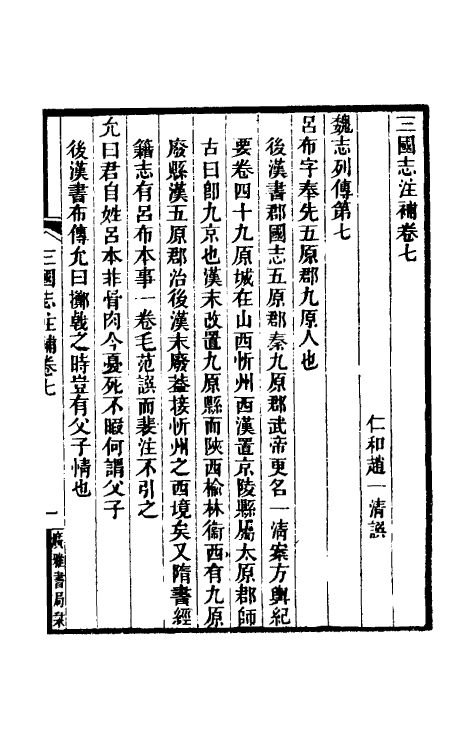 三國志注補卷七
仁和趙一清誤
魏志列傳第七
呂布字奉先五原郡九原人也
後漢書郡國志五原郡秦九原郡武帝更名一清案方輿紀
要卷四十九原城在山西忻州西漢置京陵縣屬太原郡師
古曰卽九京也漢末改置九原縣而陝西榆林衞西有九原
廢縣漢五原郡治後漢末廢葢接忻州之西境矣又隋書經
籍志有呂布本事一卷毛范譔而裴注不引之
允曰君自姓呂本非骨肉今憂死不暇何謂父子
後漢書布傳允曰擲戟之時豈有父子情也
三國志注補卷七
一
廣雅書局栞